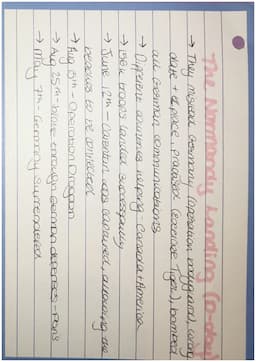 The Normandy Landing (D-day)
→ They mislead Germany (operation bodyguard), wrong
date + place, practised (exercise Tiger), bombed
all German communications
→ Different countries helping - Canada + America
→ 156k troops landed successfully
→ June 12th - Carentan was captured, allowing the
beaches to be connected
→ Aug 15th - Operation Dragoon
→ Aug 25th - broke through German defenses - Paris
→ May 7th - Germany Surrendered